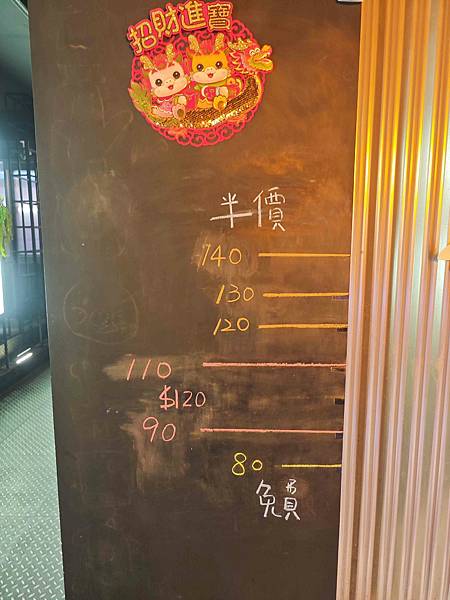 招財進寶
半價
140
130
120
110
$120
90
80
免費